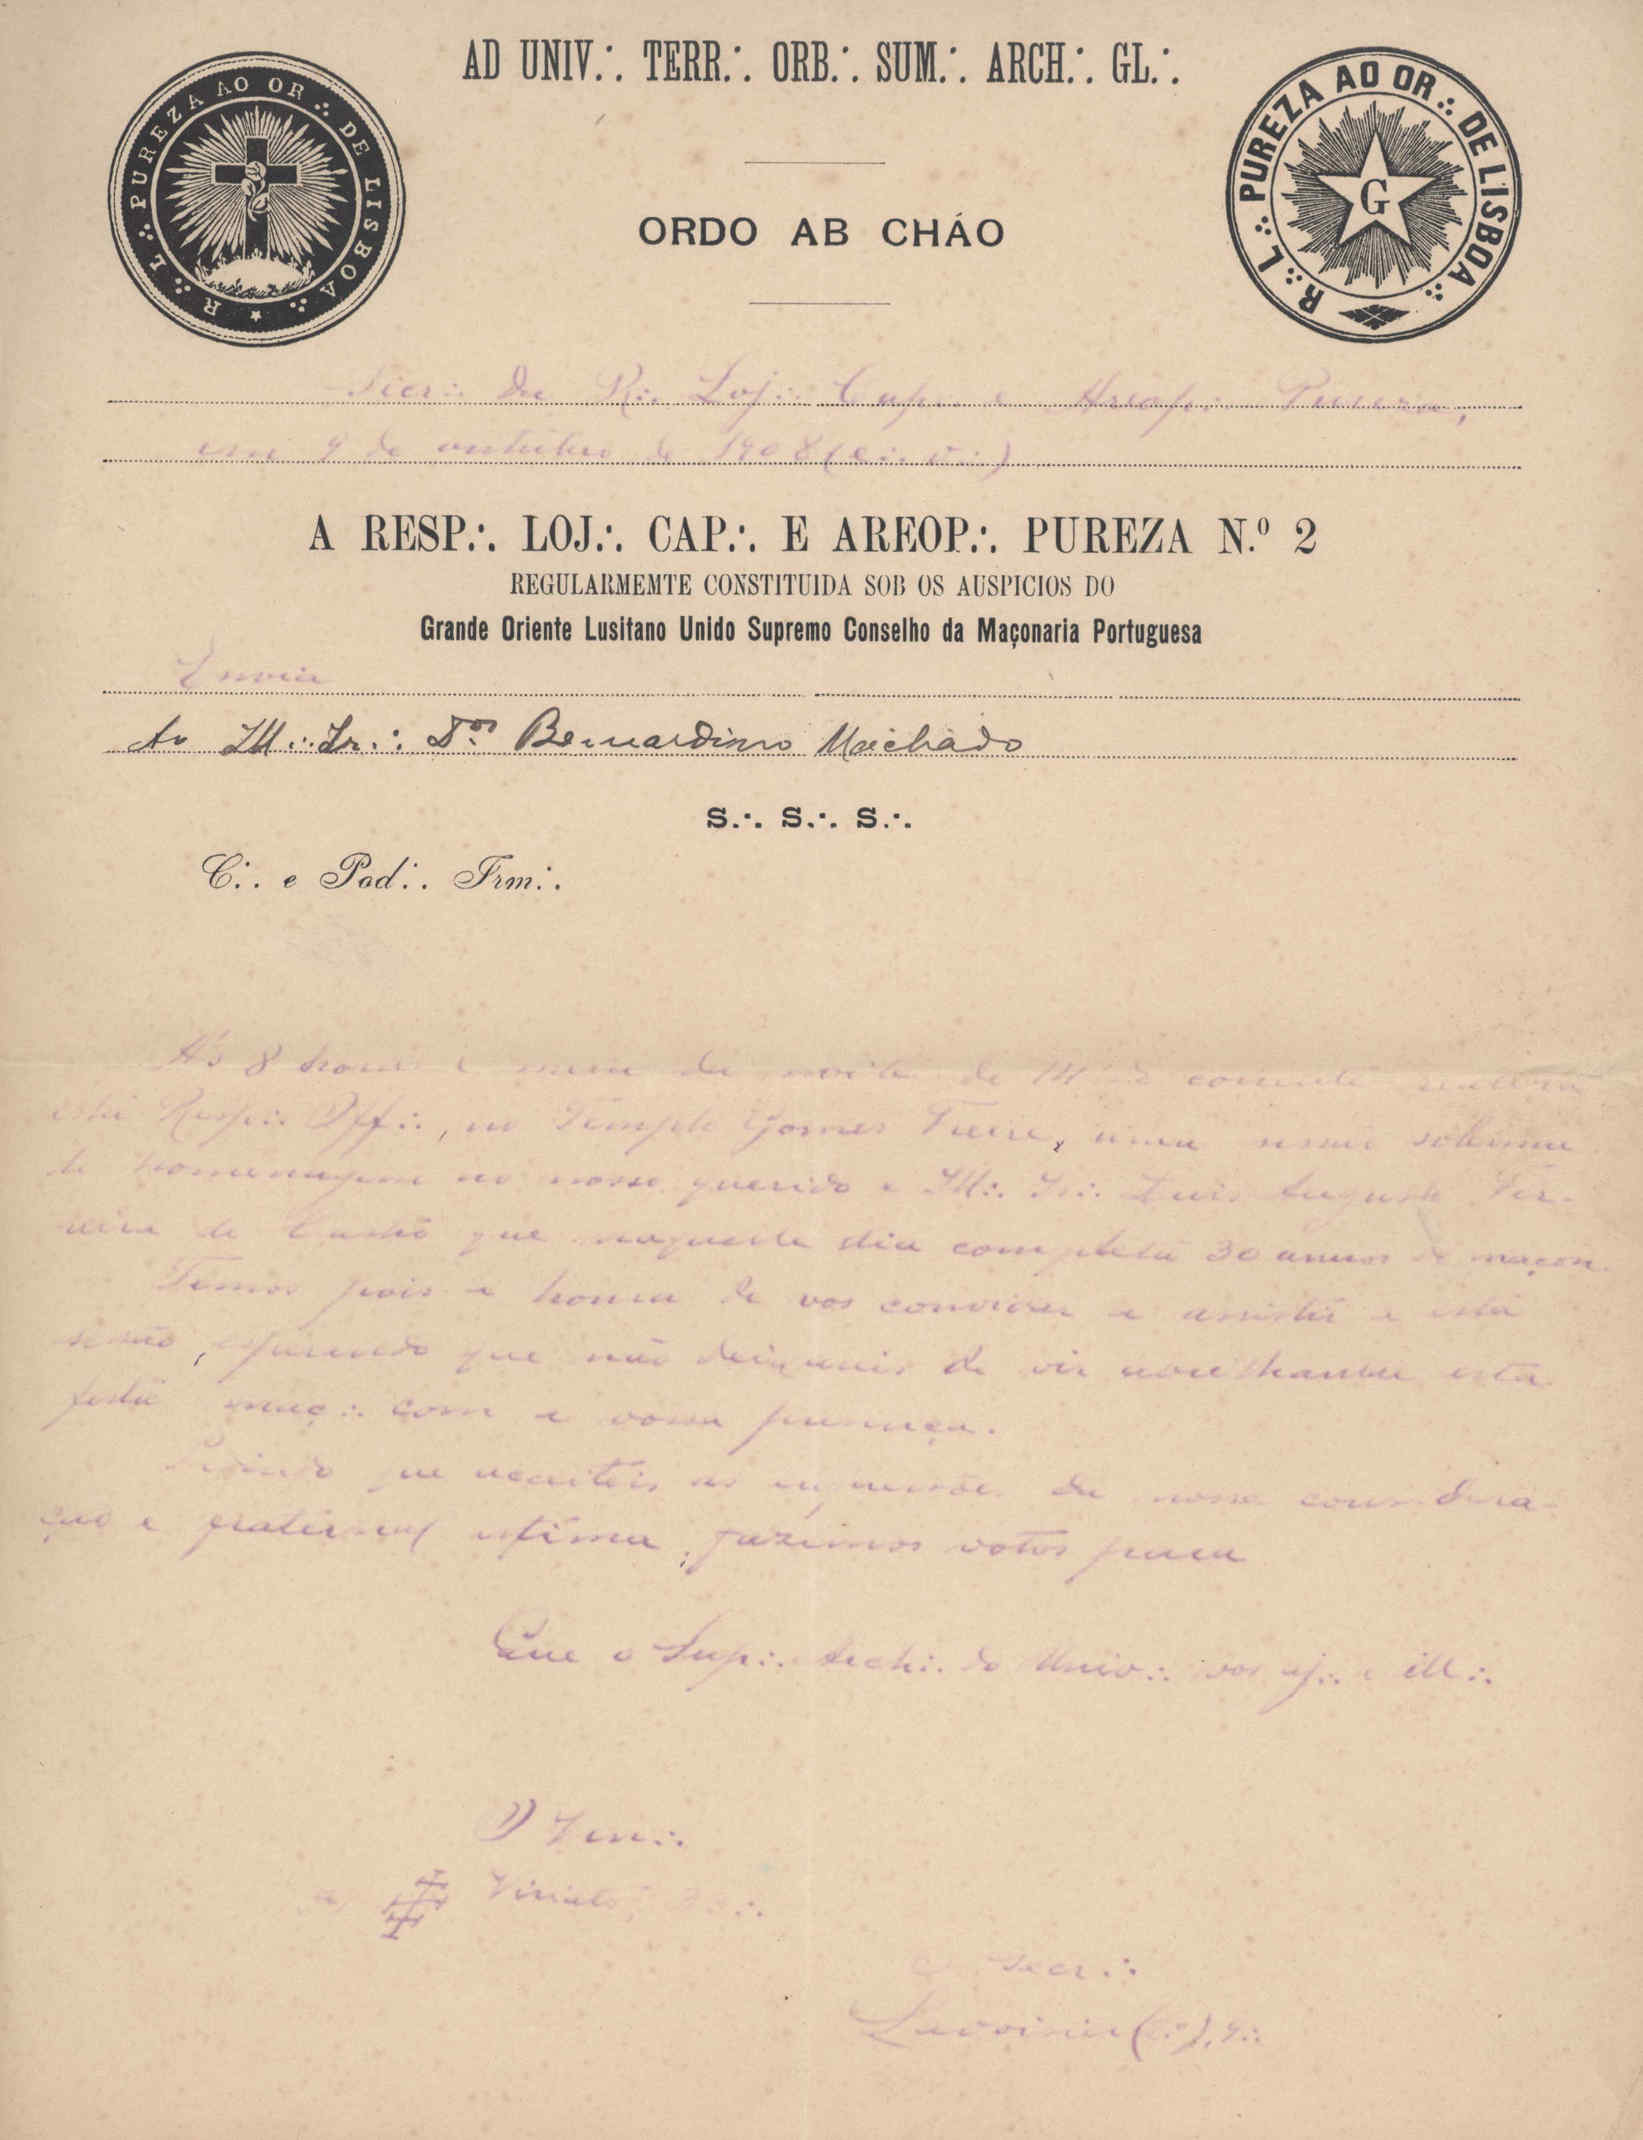 AD UNIV.∴ TERR.∴ ORB.∴ SUM.∴ ARCH.∴ GL.∴
R∴ L∴ PUREZA AO OR∴ DE LISBOA∴
R∴ L∴ PUREZA AO OR∴ DE LISBOA∴
G
ORDO AB CHÁO
Secr∴ da R∴ Loj∴ Cap∴ e Areop∴ Pureza,
em 9 de outubro de 1908 (e∴ v∴)
A RESP.∴ LOJ.∴ CAP.∴ E AREOP.∴ PUREZA N.º 2
REGULARMEMTE CONSTITUIDA SOB OS AUSPICIOS DO
Grande Oriente Lusitano Unido Supremo Conselho da Maçonaria Portuguesa
Envia
Ao Ill∴ Ir∴ Dor Bernardino Machado
S.∴ S.∴ S.∴
C∴ e Pod∴ Irm∴
Ás 8 horas e meia da noite de do corrente realiza
esta Resp∴ Off∴, no Templo Gomes Freire, uma sessão solemne
de homenagem ao nosso querido e Ill∴ Ir∴ Luis Augusto Fer-
reira de Castro que naquelle dia completa 30 annos de maçon.
Temos pois a honra de vos convidar a assistir a esta
sessão, esperando que não deixareis de vir abrilhantar esta
festa maç∴ com a vossa presença.
Pedindo que acceiteis as expressões da nossa considera-
ção e fraternal estima, fazemos votos para
Que o Sup∴ Arch∴ do Univ∴ vos aj∴ e ill∴
O Ven∴
Viriato,
O Secr∴
Lavoisier